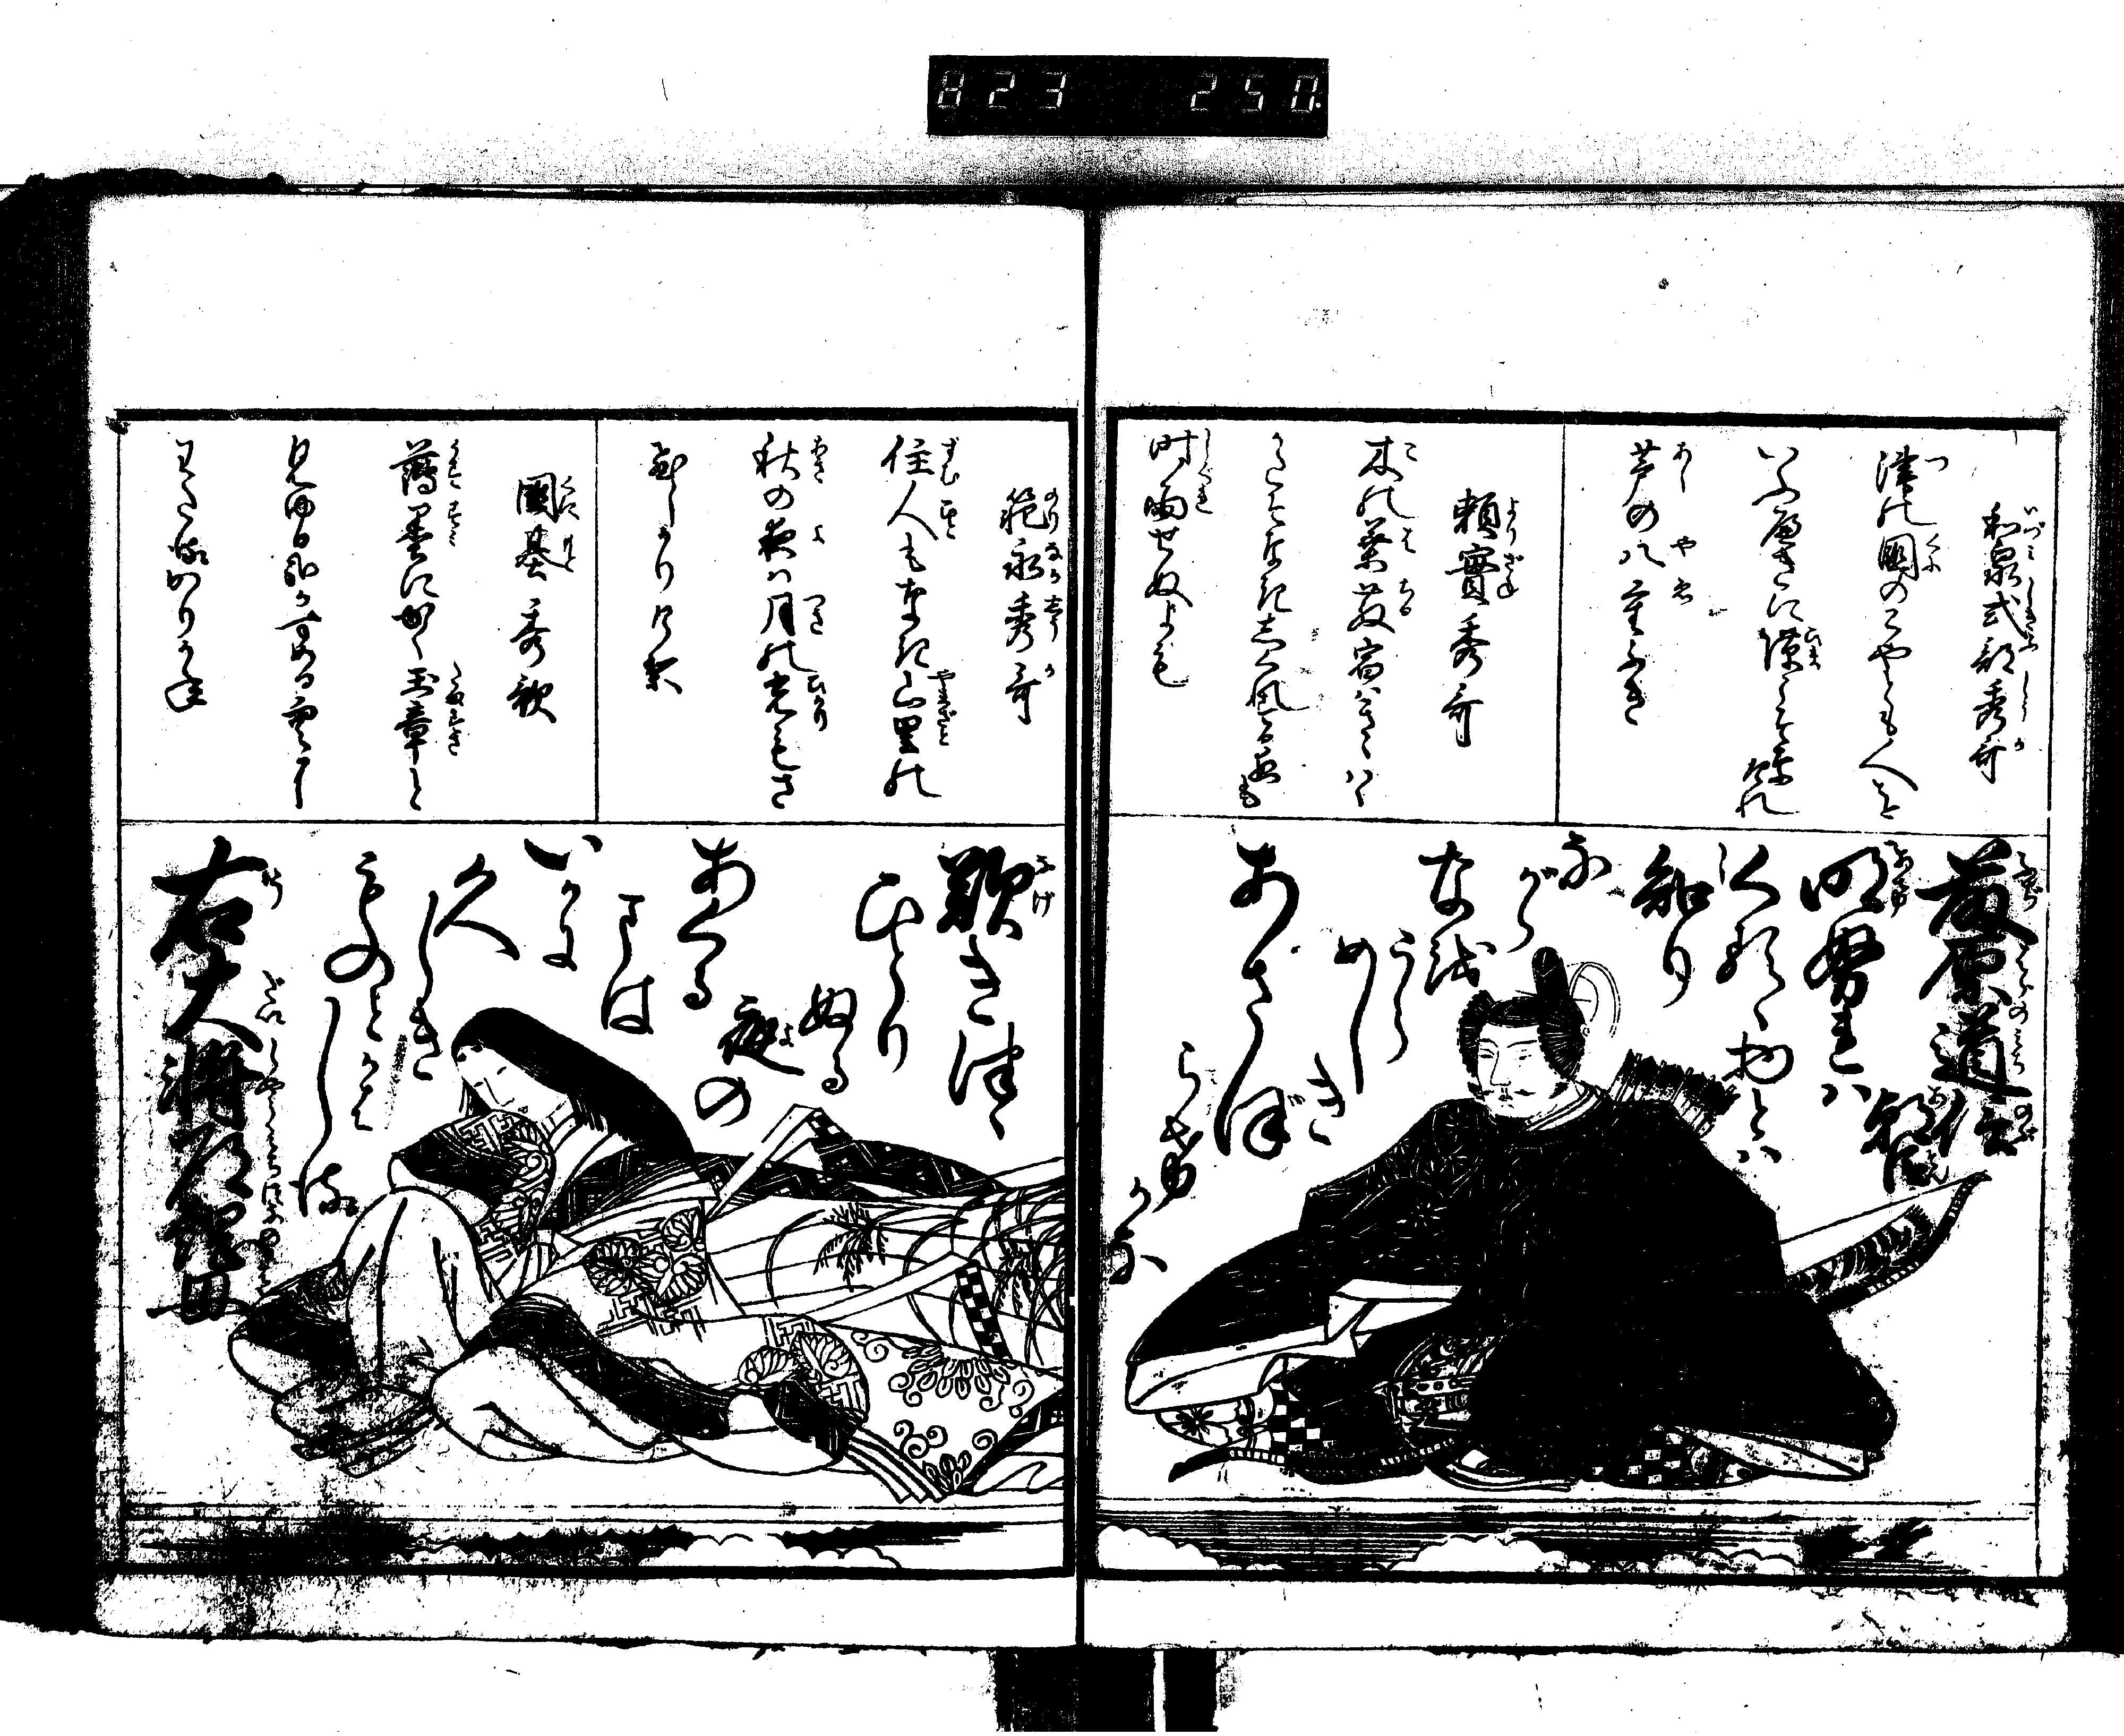 823 250.
和泉式部秀哥
津の國のこやとも人を
いふべきに隙こそなけれ
芦の八重ぶき
頼實秀哥
木の葉散宿はきゝわく
かたぞなき志ぐれする夜も
時雨せぬよも
藤原道信朝臣
明ぬれハ
くるゝ物とハ
知り
ながら
なを
うら
めしき
あさぼ
らけ
かな
範永秀哥
住人もなき山里の
秋の夜ハ月の光もさ
びしかりけり
國基秀歌
薄墨にかく玉章と
見ゆるかな
かすめる空に
かへるかりがね
歎きつゝ
ひとり
ぬる
夜の
あくる
まは
いかに
久
しき
ものとかは
しる
右大将道綱母